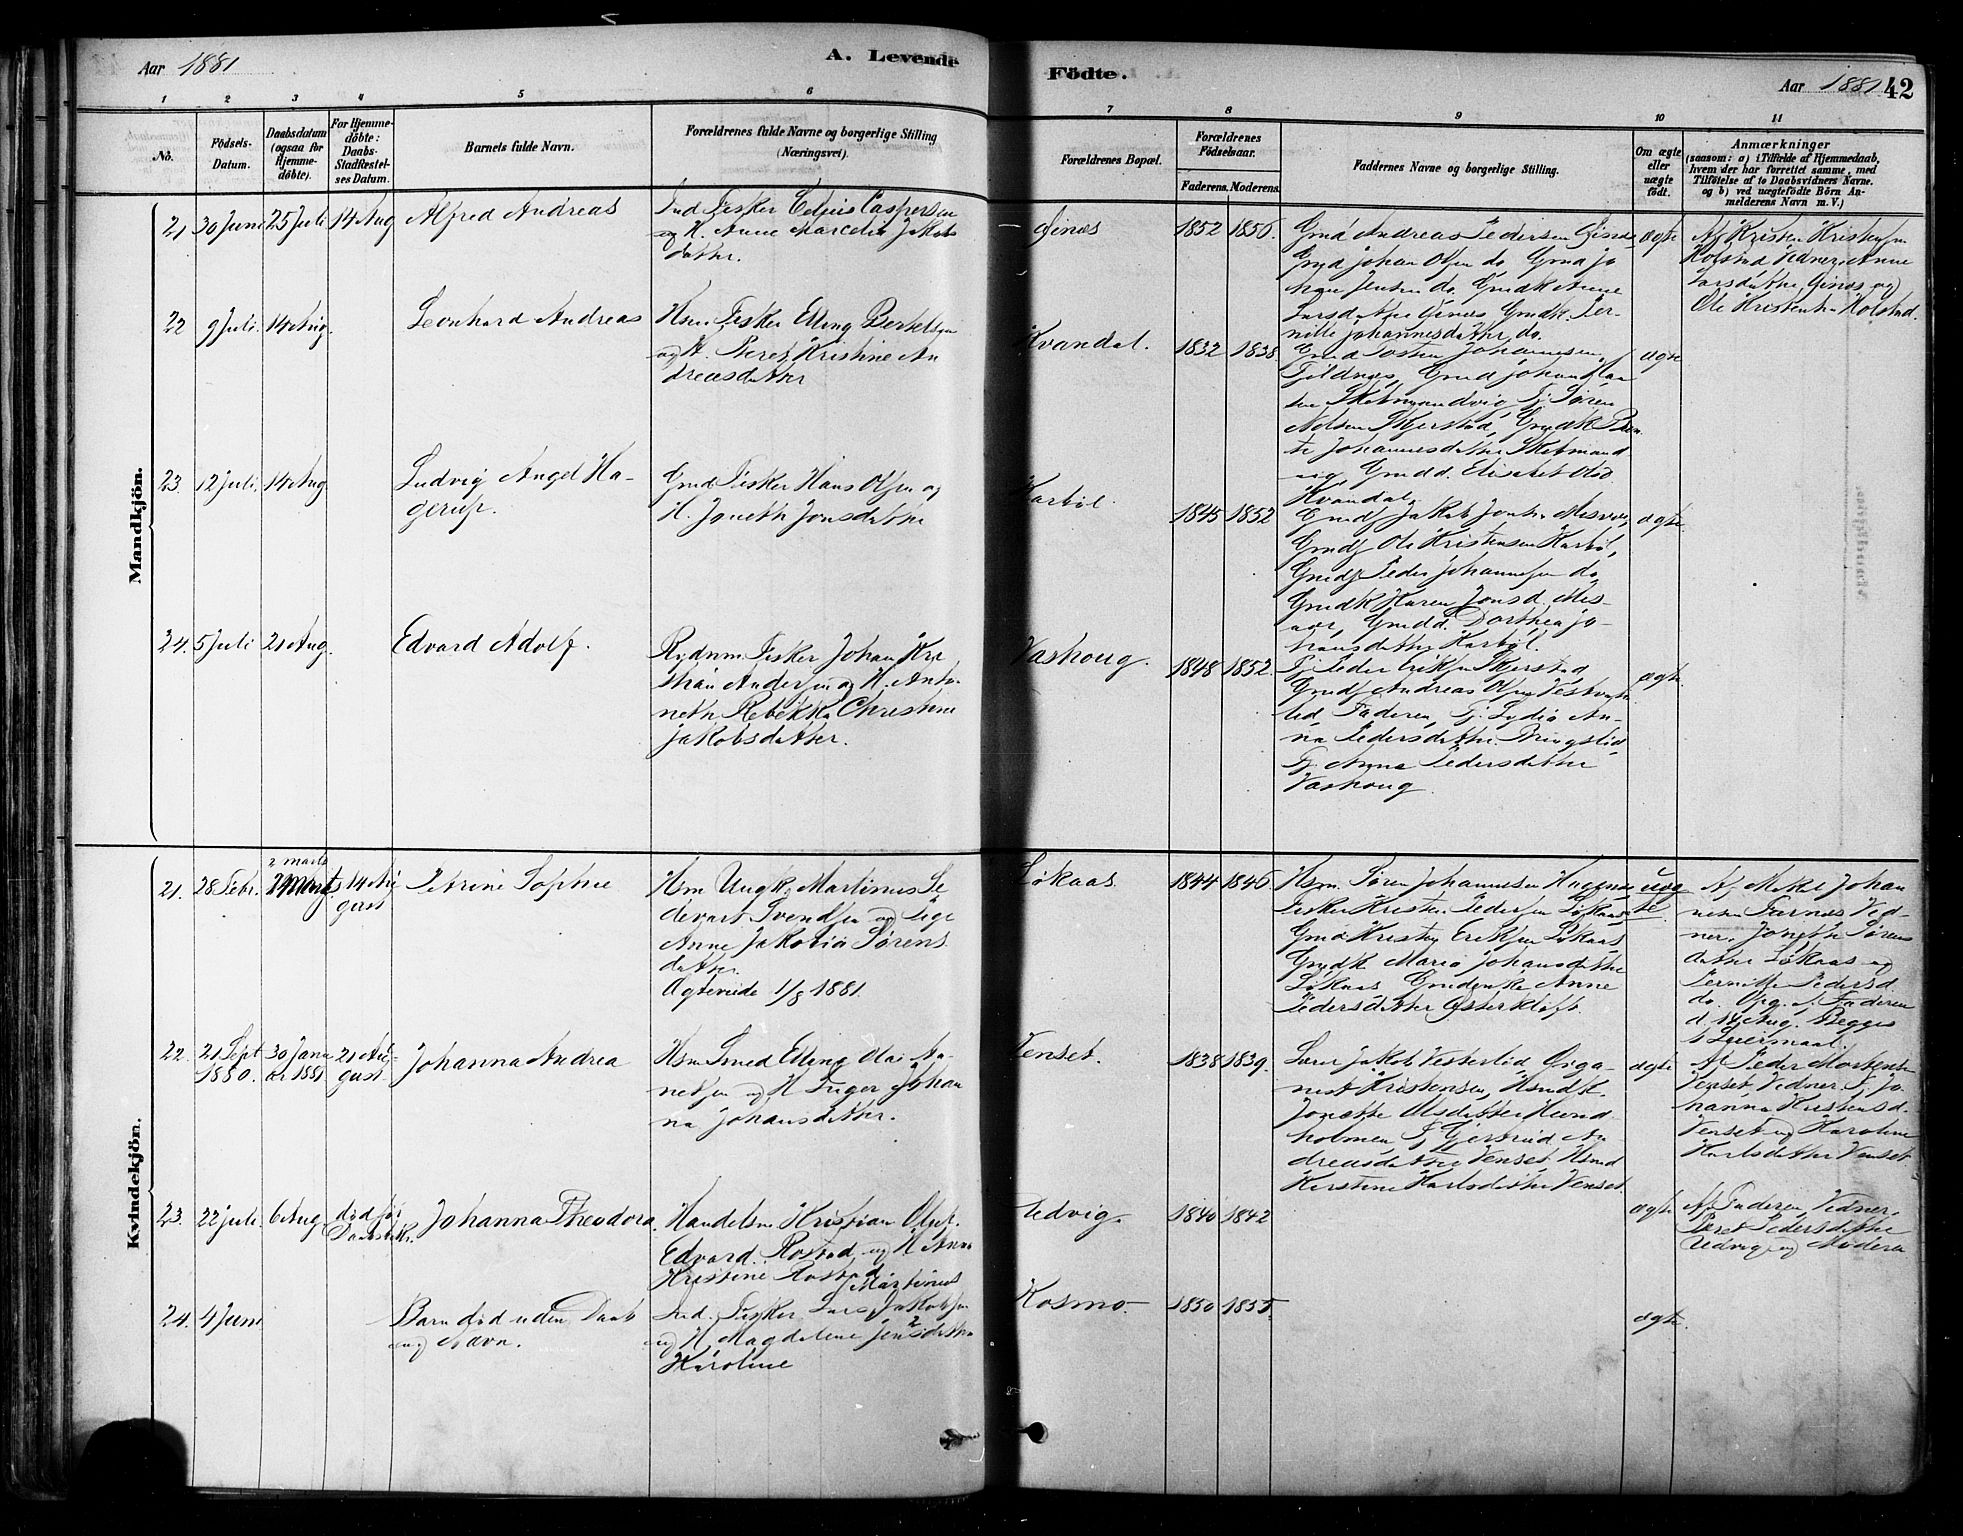 Aar 1881
A. Levende
Födte.
Aar 1881
42
1 2 3 4 5 6
7 8 9 10 11
Nö.
Födsels-
Datum.
Daabsdatum
(ogsaa for
Hjemme-
döbte).
For Hjemme-
döbte:
Daabs-
Stadfæstel-
ses Datum.
Barnets fulde Navn.
Forældrenes fulde Navne og borgerlige Stilling
(Næringsvei).
Forældrenes Bopæl.
Forældrenes
Födselsaar.
Faderens. Moderens.
Faddernes Navne og borgerlige Stilling.
Om ægte
eller
uægte
födt.
Anmærkninger
(saasom: a) i Tilfælde af Hjemmedaab,
hvem der har forrettet samme, med
Tilföielse af to Daabsvidners Navne.
og b) ved uægtefödte Börn An-
melderens Navn m. V.)
Mandkjön.
21 30 Juni 25 Juli 14 Aug Alfred Andreas
Ind Fisker Caspersen
og H. Anne Marcelia Jakobs
datter.
Ginæs 1852 1856.
Gmd Andreas Pedersen Ginæs
Gmd Johan Olsen do Gmd Jo
han Jensen do Gmdk Anne
Larsdatter Ginæs Gmdk. Per-
nille Johannesdatter do.
ægte
Af Kristen Kristensen
Kolstad Vidner. Anne
Larsdatter Ginæs og
Ole Kristensen Kolstad.
22 9 Juli. 14 Aug. Leonhard Andreas
Hsm. Fisker Elling Bertelsen
og H. Beret Kristine An
dreasdatter
Kvandal. 1832 1838.
Gmd Tosten Johannesen
Fjeldnæs, Gmd Johan
Søren
Nelsen Skjerstad, Gmdk Ben
te Johannesdatter
vig, Gmdd. Elisabet Olsd
Kvandal
ægte
23 12 Juli. 14 Aug Ludvig Angel Ha-
gerup.
Gmd Fisker Hans Olsen og
H. Joneth Jonsdatter
Karbøl. 1845 1852
Gmdf Jakob Misvær,
Gmdf Ole Kristensen Karbøl,
Gmdf Peder Johannesen do
Gmdk Karen Jonsd. Mis-
vær, Gmdd. Dorthea Jo-
hansdatter Karbøl.
ægte.
24. 5 Juli 21 Aug. Edvard Adolf.
Rydnm. Fisker Johan Kri
stian Andersen og H. Anto
neth Rebekka Christine
Jakobsdatter.
Vashoug. 1848 1852.
Tj. Peder Eriksen Skjerstad
Gmdf Andreas Olsen Vestvatn
Faderen, Tj. Lydia An-
na Pedersdatter
Tj. Anna Pedersdatter
Vashoug.
ægte.
Kvindekjön.
21. 28 Febr. 2 marts 14 Au
gust
Petrine Sophie
Hsm Ungk. Martinus Se
devart Svendsen og Pige
Anne Jakobia Sørens
datter.
Ægteviede 1/8 1881.
Løkaas 1844 1846
Hsm. Søren Johannesen
Fisker Kristen Pedersen Løkaas
Gmd Kristen Eriksen Løkaas
Gmdk Maria Johansdatter
Løkaas Gmdenke Anne
Pedersdatter Østerkløft
uæg
te
Af Johan
nesen Farnæs Vid-
ner. Joneth Sørens
datter Løkaas og
Pernille Pedersd.
do. Opg. f. Faderen
d. 14 Aug. Begges
1 Leiermaal.
22. 21 Sept
1880.
30 Janu
ar 1881
21 Au-
gust
Johanna Andrea
Hsm Smed Elling Olai
netsen og H Inger Johan
na Johansdatter.
Venset. 1838 1839.
Lærer Jakob Vesterlid
Kristensen, Hsmdk.
Jonette Olsdatter Hund
holmen Tj Gjertrud An
dreasdatter Venset Hsmd
Kerstine Karlsdatter Venset.
ægte
Af Peder Mortensen
Venset Vidner Tj. Jo
hanna Kristensd.
Venset og Karoline
Karlsdatter Venset.
23. 22 Juli. 6 Aug. død før
Johanna Theodora.
Handelsm Kristian Oluf
Edvard Rostad og H Anna
Kristine Rostad
Udvig. 1840 1842
ægte
Af Faderen Vidner.
Beret Pedersdatter
Udvig og Moderen
24. 4 Juni
Barn død uden Daab
og Navn.
Ind. Fisker Lars Martinus Jakobsen
og H Magdelene Jensdatter
Karoline
Kosmo. 1850 1855.
ægte.